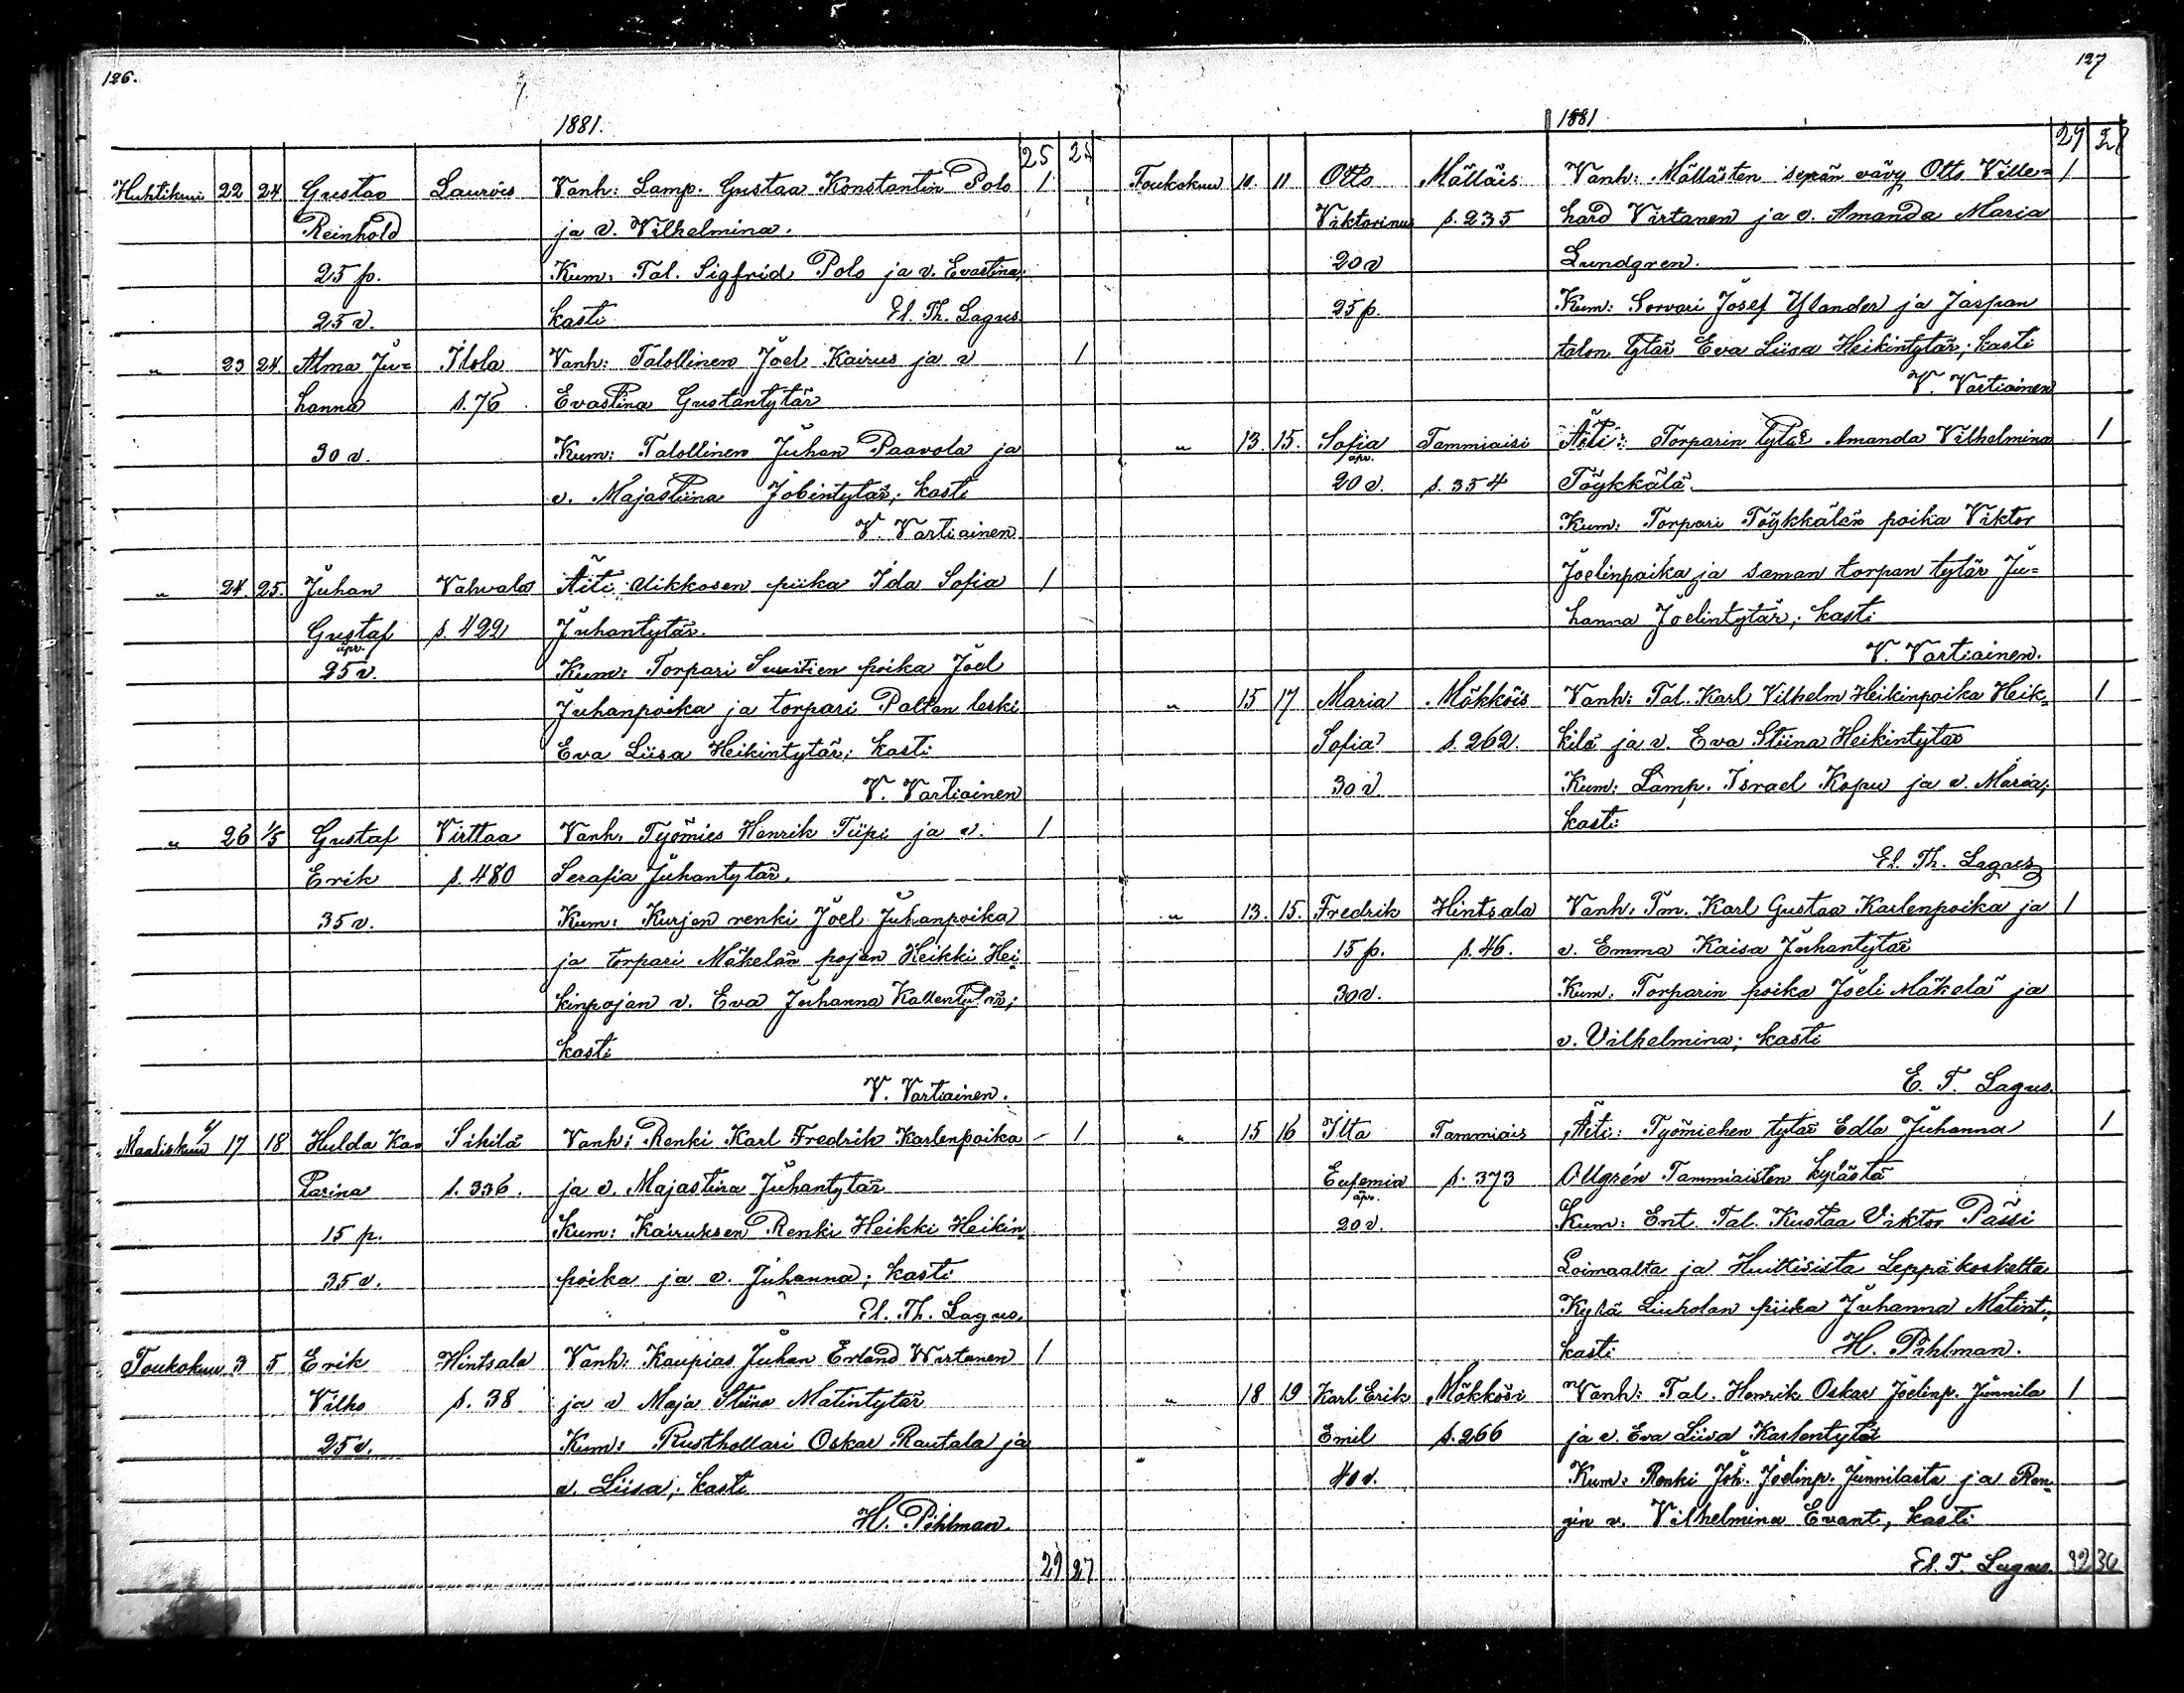 126.
1881.
25 25
Huhtikuu 22 24 Gustav Lauvois Vanh: Lamp. Gustaa Konstantin Polo 1
Reinhold ja v. Vilhelmina.
25 p. Kum: Tal. Sigfrid Polo ja v. Evastina;
25 v. kasti El. Th. Lagus.
" 23 24. Alma Ju= Ilola Vanh: Talollinen Joel Kairus ja v 1
hanna s. 76 Evastina Gustantytär
30 v. Kum: Talollinen Juhan Paavola ja
v. Majastiina Jobintytär; kasti
V. Vartiainen.
" 24. 25. Juhan Vahvala Äiti: Mikkosen piika Ida Sofia 1
Gustaf s. 422 Juhantytär.
äpr.
25 v. Kum: Torpari poika Joel
Juhanpoika ja torpari Paltan leski
Eva Liisa Heikintytär; kasti
V. Vartiainen
" 26 1/5 Gustaf Virttaa Vanh: Työmies Henrik Tiipi ja v. 1
Erik s. 480 Serafia Juhantytär.
35 v. Kum: Kurjen renki Joel Juhanpoika
ja torpari Mäkelän pojan Heikki Hei-
kinpojan v. Eva Juhanna Kallentytär;
kasti
V. Vartiainen.
Maaliskuu 17 18 Hulda Ka= Sikilä Vanh: Renki Karl Fredrik Karlenpoika - 1
tarina s. 336. ja v. Majastiina Juhantytär
15 p. Kum: Kairuksen Renki Heikki Heikin-
35 v. poika ja v. Juhanna; kasti
El. Th. Lagus.
Toukokuu 3 5 Erik Hintsala Vanh: Kaupias Juhan Erland Wirtanen 1
Vilho s. 38 ja v Maja Stiina Matintytär
25 v. Kum: Rusthollari Oskar Rautala ja
v. Liisa; kasti
H. Pihlman.
29 27
127
1881
29 27
Toukokuu 10. 11 Otto Mälläis Vanh: Mällästen sepän vävy Otto Ville= 1
Viktorinus s. 235 hard Virtanen ja v. Amanda Maria
20 v Lundgren.
25 p. Kum: Sorvari Josef Ylander ja Jaspan
talon tytär Eva Liisa Heikintytär; kasti
V. Vartiainen
" 13. 15. Sofia Tammiaisi Äiti: Torparin tytär Amanda Vilhelmina 1
äpr.
20 v. s. 354 Töykkälä.
Kum: Torpari Töykkälän poika Viktor
Joelinpoika ja saman torpan tytär Ju=
hanna Joelintytär; kasti
V. Vartiainen.
" 15 17 Maria Mäkköis Vanh: Tal. Karl Vilhelm Heikinpoika Heik- 1
Sofia s. 262. kilä ja v. Eva Stiina Heikintytär
30 v. Kum: Lamp. Israel Kopu ja v. Maria;
kasti
El. Th. Lagus
" 13. 15. Fredrik Hintsala Vanh: Tm. Karl Gustaa Karlenpoika ja 1
15 p. s. 46. v. Emma Kaisa Juhantytär
30 v. Kum: Torparin poika Joeli Mäkelä ja
v. Vilhelmina; kasti
E. T. Lagus.
" 15 16 Ilta Tammiais Äiti: Työmiehen tytär Edla Juhanna 1
Eufemia s. 373 Ollgrén Tammiaisten kylästä
äpr.
20 v. Kum: Ent. Tal. Kustaa Viktor Pässi
Loimaalta ja Huittisista Leppäkoskelta
Kylä Liuholan piika Juhanna Matint.;
kasti H. Pihlman.
" 18 19 Karl Erik Mäkköisi Vanh: Tal. Henrik Oskar Joelinp. Junnila 1
Emil s. 266 ja v. Eva Liisa Karlentytär
40 v. Kum: Renki Joh. Joelinp. Junnilasta ja Ren-
gin v. Vilhelmina Evant, kasti
El. T. Lagus. 32 30